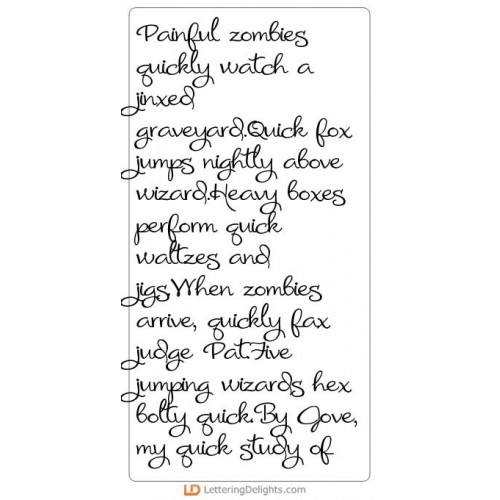 Painful zombies
quickly watch a
jinxed
graveyard.Quick fox
jumps nightly above
wizard.Heavy boxes
perform quick
waltzes and
jigs.When zombies
arrive, quickly fax
judge Pat.Five
jumping wizards hex
bolty quick.By Jove,
my quick study of
LD LetteringDelights.com